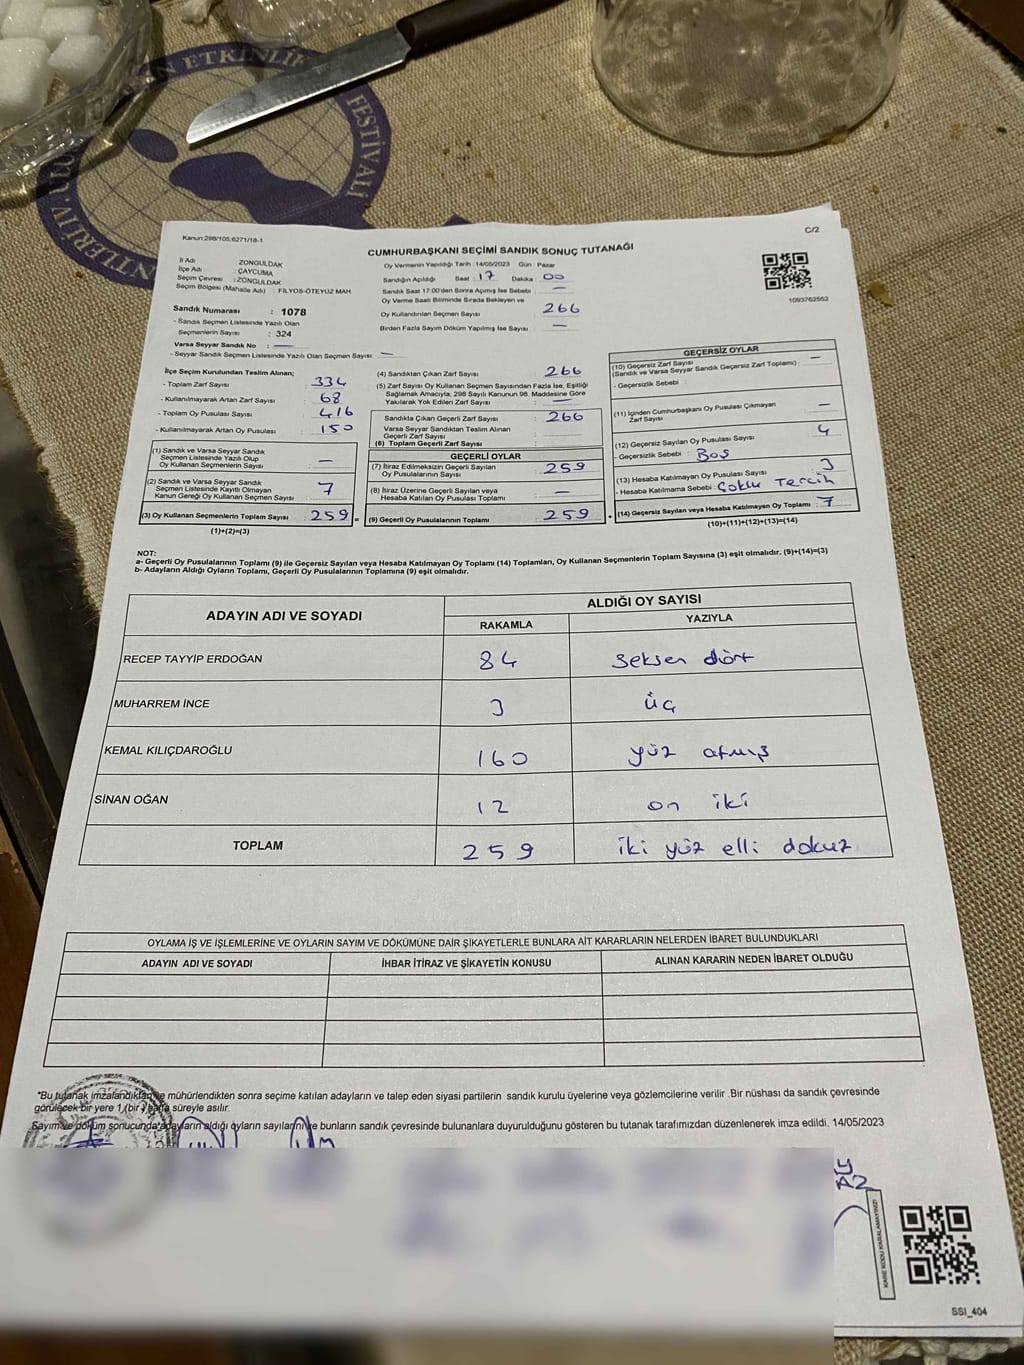 N ETKİNLİK
FESTİVALİ
NTLERİ IV.
Kanun:298/105,6271/18-1
C/2
CUMHURBAŞKANI SEÇİMİ SANDIK SONUÇ TUTANAĞI
İl Adı : ZONGULDAK
İlçe Adı : ÇAYCUMA
Seçim Çevresi : ZONGULDAK
Seçim Bölgesi (Mahalle Adı) : FİLYOS-ÖTEYÜZ MAH
Sandık Numarası : 1078
- Sandık Seçmen Listesinde Yazılı Olan
Seçmenlerin Sayısı : 324
Varsa Seyyar Sandık No : —
- Seyyar Sandık Seçmen Listesinde Yazılı Olan Seçmen Sayısı: —
Oy Vermenin Yapıldığı Tarih : 14/05/2023 Gün : Pazar
Sandığın Açıldığı Saat : 17 Dakika : 00
Sandık Saat 17:00'den Sonra Açımış İse Sebebi : —
Oy Verme Saati Bitiminde Sırada Bekleyen ve
Oy Kullandırılan Seçmen Sayısı : 266
Birden Fazla Sayım Döküm Yapılmış İse Sayısı : —
1093762562
İlçe Seçim Kurulundan Teslim Alınan;
- Toplam Zarf Sayısı : 334
- Kullanılmayarak Artan Zarf Sayısı : 68
- Toplam Oy Pusulası Sayısı : 416
- Kullanılmayarak Artan Oy Pusulası : 150
(1) Sandık ve Varsa Seyyar Sandık
Seçmen Listesinde Yazılı Olup
Oy Kullanan Seçmenlerin Sayısı : —
(2) Sandık ve Varsa Seyyar Sandık
Seçmen Listesinde Kayıtlı Olmayan
Kanun Gereği Oy Kullanan Seçmen Sayısı : 7
(3) Oy Kullanan Seçmenlerin Toplam Sayısı : 259 =
(1)+(2)=(3)
(4) Sandıktan Çıkan Zarf Sayısı : 266
(5) Zarf Sayısı Oy Kullanan Seçmen Sayısından Fazla İse, Eşitliği
Sağlamak Amacıyla; 298 Sayılı Kanunun 98. Maddesine Göre
Yakılarak Yok Edilen Zarf Sayısı : —
Sandıkla Çıkan Geçerli Zarf Sayısı : 266
Varsa Seyyar Sandıktan Teslim Alınan
Geçerli Zarf Sayısı :
(6) Toplam Geçerli Zarf Sayısı :
GEÇERLİ OYLAR
(7) İtiraz Edilmeksizin Geçerli Sayılan
Oy Pusulalarının Sayısı : 259
(8) İtiraz Üzerine Geçerli Sayılan veya
Hesaba Katılan Oy Pusulası Toplamı : —
(9) Geçerli Oy Pusulalarının Toplamı : 259 +
GEÇERSİZ OYLAR
(10) Geçersiz Zarf Sayısı
(Sandık ve Varsa Seyyar Sandık Geçersiz Zarf Toplamı) : —
- Geçersizlik Sebebi :
(11) İçinden Cumhurbaşkanı Oy Pusulası Çıkmayan
Zarf Sayısı : —
(12) Geçersiz Sayılan Oy Pusulası Sayısı : 4
- Geçersizlik Sebebi : Boş
(13) Hesaba Katılmayan Oy Pusulası Sayısı : 3
- Hesaba Katılmama Sebebi : Çoklu Tercih
(14) Geçersiz Sayılan veya Hesaba Katılmayan Oy Toplamı : 7
(10)+(11)+(12)+(13)=(14)
NOT:
a- Geçerli Oy Pusulalarının Toplamı (9) ile Geçersiz Sayılan veya Hesaba Katılmayan Oy Toplamı (14) Toplamları, Oy Kullanan Seçmenlerin Toplam Sayısına (3) eşit olmalıdır. (9)+(14)=(3)
b- Adayların Aldığı Oyların Toplamı, Geçerli Oy Pusulalarının Toplamına (9) eşit olmalıdır.
ADAYIN ADI VE SOYADI
ALDIĞI OY SAYISI
RAKAMLA YAZIYLA
RECEP TAYYİP ERDOĞAN 84 seksen dört
MUHARREM İNCE 3 üç
KEMAL KILIÇDAROĞLU 160 yüz atmış
SİNAN OĞAN 12 on iki
TOPLAM 259 iki yüz elli dokuz
OYLAMA İŞ VE İŞLEMLERİNE VE OYLARIN SAYIM VE DÖKÜMÜNE DAİR ŞİKAYETLERLE BUNLARA AİT KARARLARIN NELERDEN İBARET BULUNDUKLARI
ADAYIN ADI VE SOYADI İHBAR İTİRAZ VE ŞİKAYETİN KONUSU ALINAN KARARIN NEDEN İBARET OLDUĞU
"Bu tutanak imzalandıktan ve mühürlendikten sonra seçime katılan adayların ve talep eden siyasi partilerin sandık kurulu üyelerine veya gözlemcilerine verilir. Bir nüshası da sandık çevresinde
görülecek bir yere 1 (bir) hafta süreyle asılır.
Sayım ve döküm sonucunda adayların aldığı oyların sayılarını ve bunların sandık çevresinde bulunanlara duyurulduğunu gösteren bu tutanak tarafımızdan düzenlenerek imza edildi. 14/05/2023
KARE KODU KARALAMAYINIZ!
SSI_404